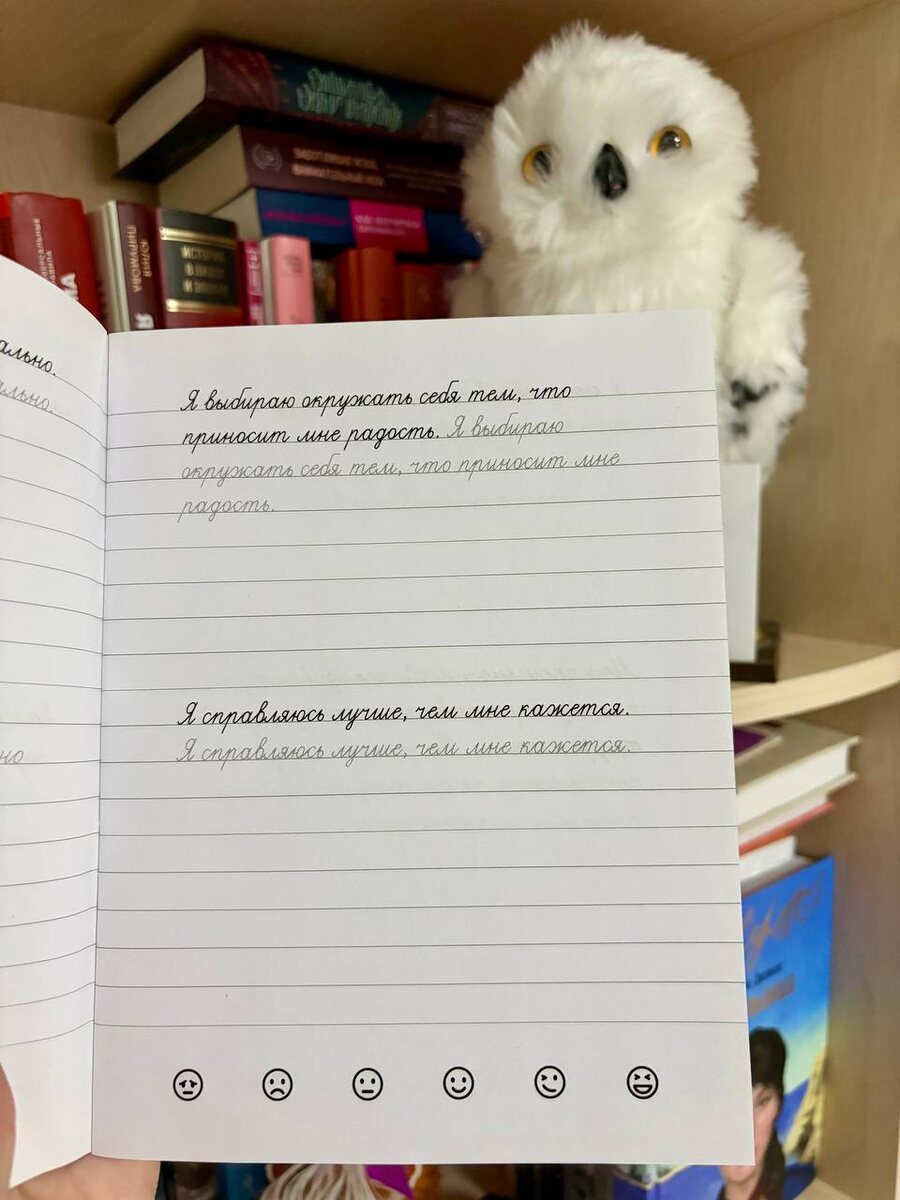 ИСТОРИЯ
В ЛИЦАХ
И ЭПОХАХ
ально.
ально.
Я выбираю окружать себя тем, что
приносит мне радость. Я выбираю
окружать себя тем, что приносит мне
радость.
Я справляюсь лучше, чем мне кажется.
Я справляюсь лучше, чем мне кажется.
но